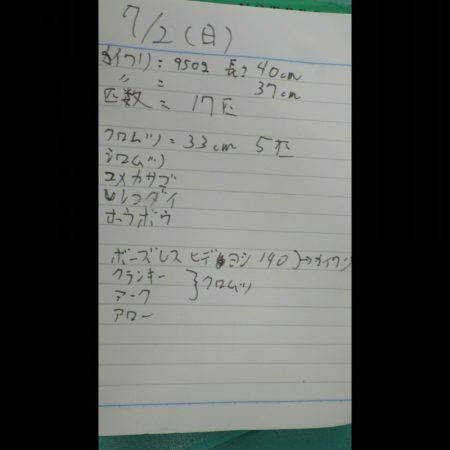 7/2(日)
オイワリ:950g 長さ40cm
〃 = 37cm
匹数 = 17匹
クロムツ=33cm 5匹
シロムツ
ユメカサゴ
レンコダイ
ホウボウ
ボーズレス ヒデヨシ190)→オイワリ
クランキー
アーク }クロムツ
アロー